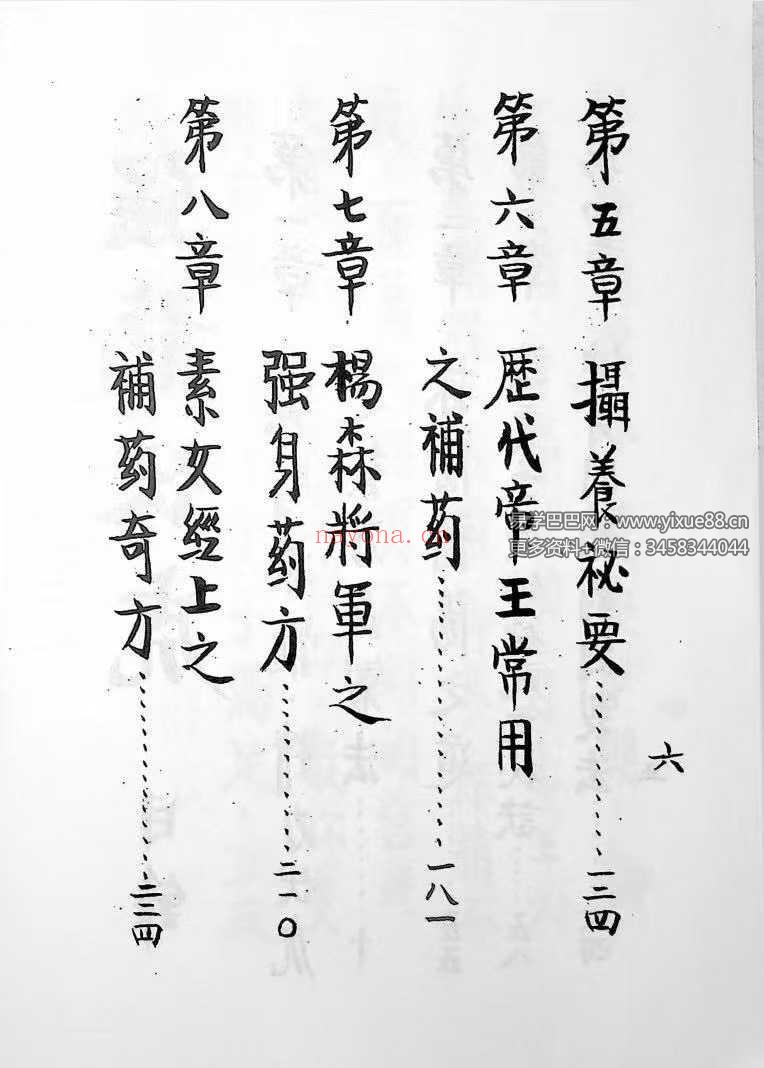 第五章 攝養祕要……一三四
第六章 歷代帝王常用
之補药……一八一
第七章 楊森將軍之
强身药方……二一〇
第八章 素女經上之
補药奇方……二三四
六
易学巴巴网：www.yixue88.cn
更多资料+微信：3458344044
nayona.cn